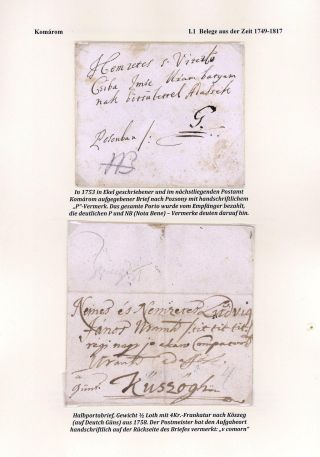 Komárom
I.1 Belege aus der Zeit 1749-1817
Nemzetes s Vitezlő
Csiba Imre Uram batyam
nak
G.
NB
In 1753 in Ekel geschriebener und im nächstliegenden Postamt
Komárom aufgegebener Brief nach Pozsony mit handschriftlichem
„P"-Vermerk. Das gesamte Porto wurde vom Empfänger bezahlt,
die deutlichen P und NB (Nota Bene) – Vermerke deuten darauf hin.
Nemes és Nemzetes Ludvig
János Uramk tit tit tit
Kűszőghű
Halbportobrief, Gewicht ½ Loth mit 4Kr.-Frankatur nach Köszeg
(auf Deutch Güns) aus 1758. Der Postmeister hat den Aufgabeort
handschriftlich auf der Rückseite des Briefes vermerkt: „v comorn"